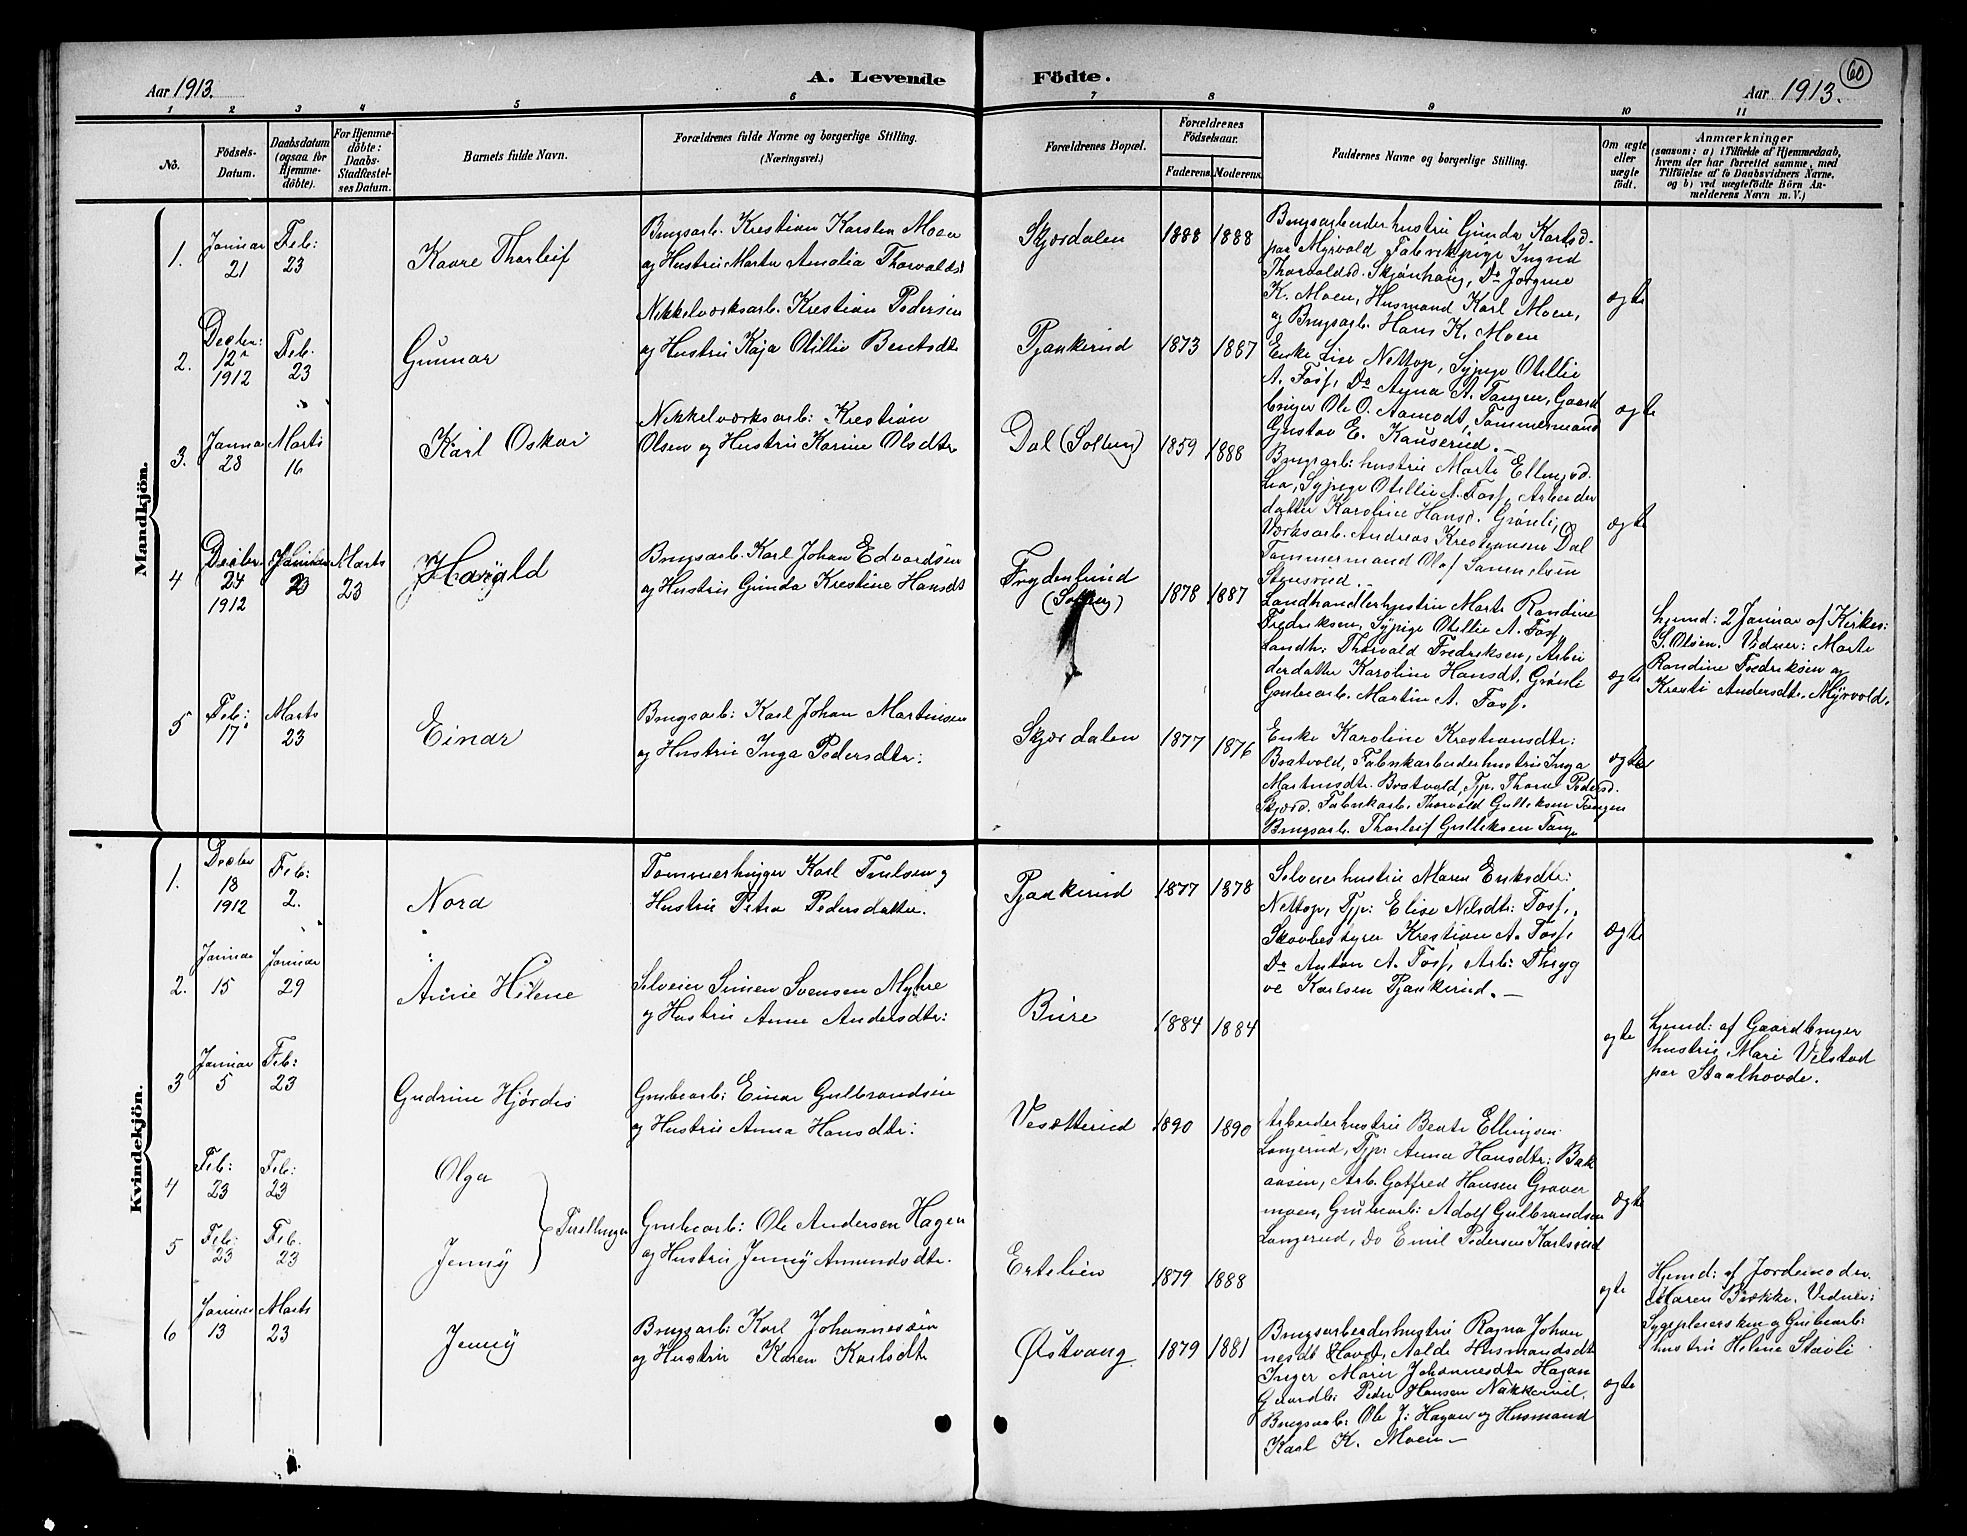 Aar 1913.
A. Levende Födte.
Aar 1913.
60
1 2 3 4 5 6 7 8 9 10 11
No.
Födsels-Datum.
Daabsdatum (ogsaa for Hjemme-döbte).
For Hjemme-döbte: Daabs-Stadfæstel-ses Datum.
Barnets fulde Navn.
Forældrenes fulde Navne og borgerlige Stilling.
(Næringsvei.)
Forældrenes Bopæl.
Forældrenes Födselsaar.
Faderens. Moderens.
Faddernes Navne og borgerlige Stilling.
Om ægte eller uægte födt.
Anmærkninger
(saasom: a) i Tilfælde af Hjemmedaab,
hvem der har forrettet samme, med
Tilföielse af to Daabsvidners Navne.
og b) ved uægtefödte Börn An-
melderens Navn m. V.)
Mandkjön.
1.
Januar
21
Feb:
23
Kaare Thorleif
Brugsarb. Kristian Karsten Moen
og Hustru Marta Amalia Thorvaldsd
Skjærdalen
1888 1888
Brugsarbeiderhustru Gunda Karlsd.
paa Myrvold, Fabrikpige Ingrid
Thorvaldsd. Skjønhaug, Do Jørgine
K. Moen, Husmand Karl Moen,
og Brugsarb. Hans K. Moen
ægte
2.
Decbr:
12
1912
Feb.
23
Gunnar
Nikkelværksarb. Kristian Pedersen
og Hustru Kaja Otillie Berntsdtr
Pjaakerud
1873 1887
Enke Lise Nettop, Sypige Otillie
A. Foss, Do Agna A. Tangen, Gaard
bruger Ole O. Aamodt, Tømmermand
Gustav E. Kauserud.
ægte
3.
Januar
28
Marts
16
Karl Oskar
Nikkelværksarb: Kristian
Olsen og Hustru Karine Olsdtr
Dal (Solberg)
1859 1888
Brugsarb: hustru Marte Ellingsd.
Lia, Sypige Otillie A. Foss, Arbeider
datter Karoline Hansd. Grønli,
Værksarb. Andreas Kristiansen Dal
Tømmermand Olaf Samuelsen
Stensrud.
ægte
4
Decbr
24
1912
Januar
2
Marts
23
Harald
Brugsarb. Karl Johan Edvardsen
og Hustru Gunda Kristine Hansdt
Frydenlund
(Solberg)
1878 1887
Landhandlerhustru Marte Randine
Fredriksen, Sypige Otillie A. Foss,
Landh: Thorvald Fredriksen, Arbei
derdatter Karoline Hansdt. Grønli
Grubearb. Martin A. Foss.
ægte
hjemd: 2 Januar af Kirkes:
S. Olsen. Vidner: Marte
Randine Fredriksen og
Kristi Andersdtr. Myrvold.
5
Feb:
17
Marts
23
Einar
Brugsarb: Karl Johan Martinsen
og Hustru Inga Pedersdtr:
Skjærdalen
1877 1876
Enke Karoline Kristiansdtr:
Bratvold, Fabrikarbeiderhustru Inga
Martinsdtr. Bratvold, Tjp. Thora Pedersd.
Skjærd. Fabrikarb. Thorvald Gulliksen Tangen
Brugsarb. Thorleif Gulliksen Tang.
ægte
Kvindekjön.
1.
Decbr
18
1912
Feb:
2.
Nora
Tømmerhugger Karl Trulsen og
Hustru Petra Pedersdatter.
Pjaakerud
1877 1878
Selveierhustru Maren Eriksdtr:
Nettop, Tjp: Elise Nilsdtr: Foss,
Skovbestyrer Kristian A. Foss,
Do Anton A. Foss, Arb: Thryg
ve Karlsen Pjaakerud.
ægte
2.
Januar
15
Januar
29
Anne Helene
Selveier Simen Svensen Myhre
og Hustru Anne Andersdtr:
Bure
1884 1884
ægte
hjemd: af Gaardbruger
hustru Mari Velstad
paa Staalhovde.
3
Januar
5
Feb:
23
Gudrun Hjørdis
Grubearb: Einar Gulbrandsen
og Hustru Anna Hansdtr:
Vesætterud
1890 1890
Arbeiderhustru Beate Ellingsen
Langerud, Tjp: Anna Hansdtr: Bak
aasen, Arb. Gotfred Hansen Graver
moen, Grubearb: Adolf Gulbrandsen
Langerud, Do Emil Pedersen Karlsrud
ægte
4
Feb:
23
Feb:
23
Olga
5
Feb:
23
Feb.
23
Jenny
Tvillinger
Grubearb: Ole Andersen Hagen
og Hustru Jenny Amundsdtr.
Ertelien
1879 1888
ægte
Hjemd: af Jordemoder
Maren Brække. Vidner:
Sygepleiersken og Grubearb:
hustru Helene Støvli
6
Januar
13
Marts
23
Jenny
Brugsarb: Karl Johannessen
og Hustru Karen Karlsdtr
Østvang
1879 1881
Brugsarbeiderhustru Ragna Johan
nesdt Hovd, Aalde Husmandsdt
Inger Marie Johannesdtr Hagan
Gaardb: Peder Hansen Nakkerud,
Brugsarb: Ole J: Hagan og Husmand
Karl K. Moen.
ægte